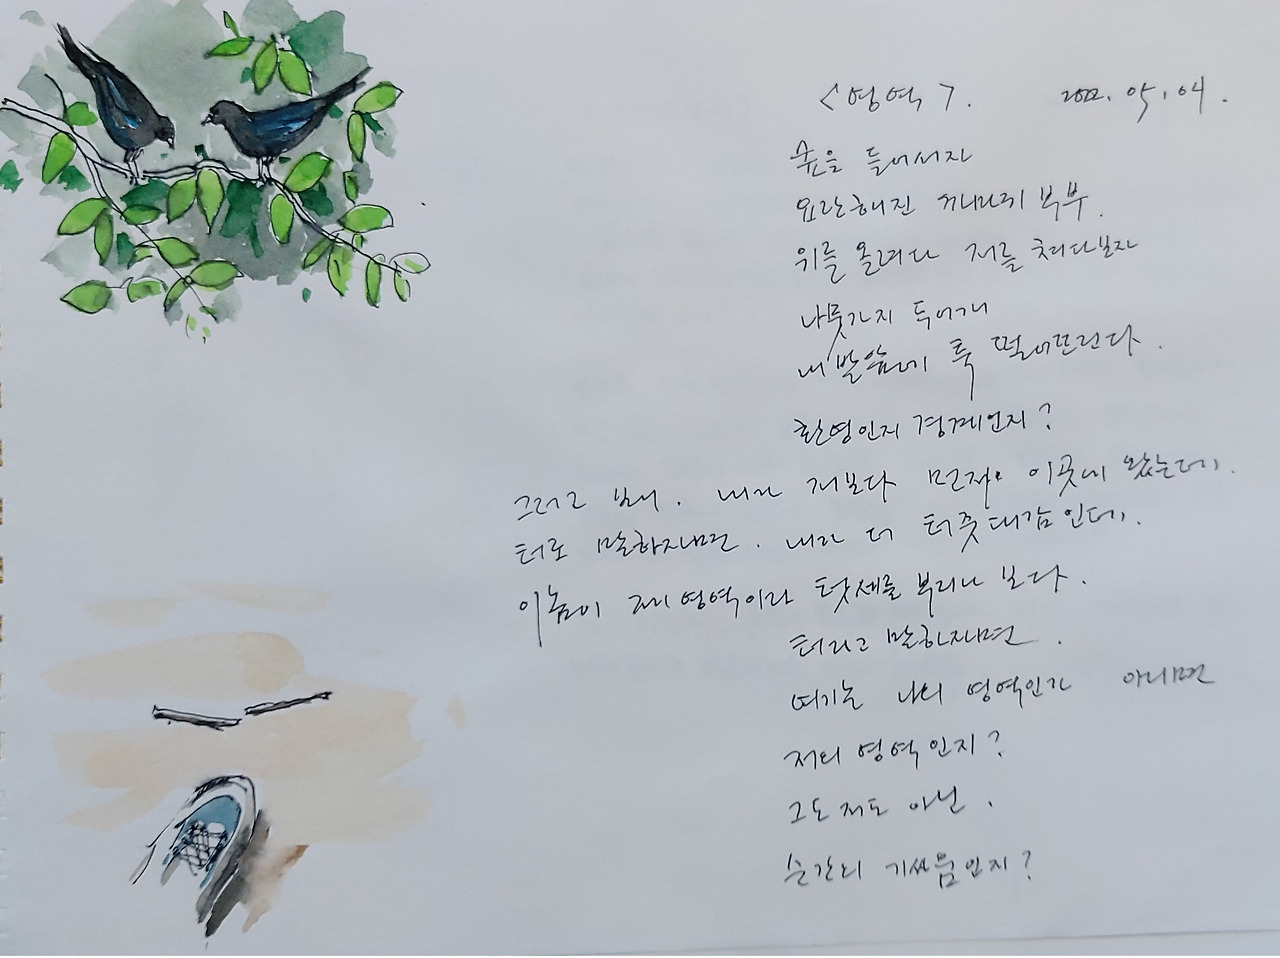 <영역>. 2022. 05. 04.
숲을 들어서자
요란해진 까마귀 부부.
위를 올려다 저를 쳐다보자
나뭇가지 두어개
내 발앞에 툭 떨어뜨린다.
환영인지 경계인지?
그러고 보니. 내가 저보다 먼저 이곳에 왔는데,
터로 말하자면. 내가 더 터줏대감인데,
이놈이 제 영역이라 텃세를 부리나 보다.
터라고 말하자면.
여기는 나의 영역인가 아니면
저의 영역인지?
그도 저도 아닌.
순간의 기싸움인지?